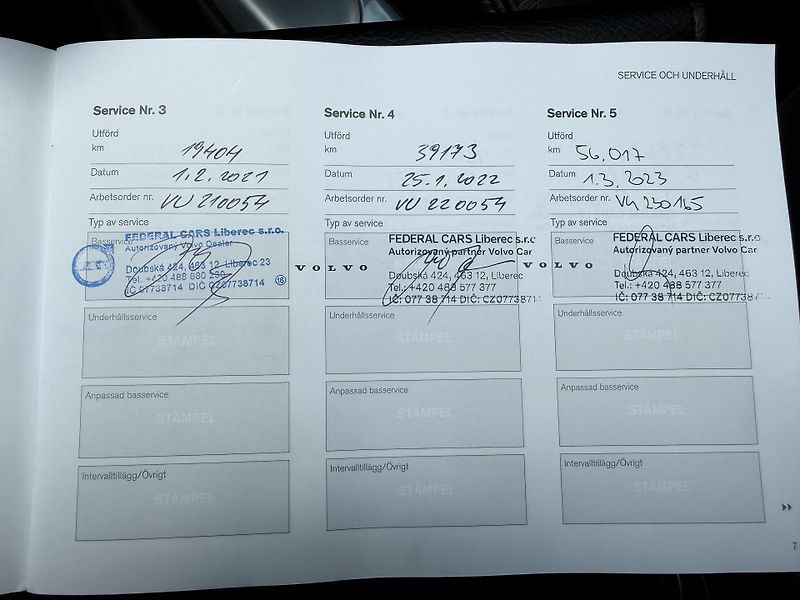 SERVICE OCH UNDERHÅLL
Service Nr. 3
Utförd
km 19404
Datum 1.2.2021
Arbetsorder nr. VU 210054
Typ av service
Basservice
FEDERAL CARS Liberec s.r.o.
Autorizovaný Volvo Dealer
Doubská 424, 463 12, Liberec 23
Tel. +420 488 880 230
IČ 07738714 DIČ CZ07738714
16
VOLVO
Underhållsservice
STÄMPEL
Anpassad basservice
STÄMPEL
Intervalltillägg/Övrigt
STÄMPEL
Service Nr. 4
Utförd
km 39173
Datum 25.1.2022
Arbetsorder nr. VU 220054
Typ av service
Basservice
FEDERAL CARS Liberec s.r.o
Autorizovaný partner Volvo Car
Doubská 424, 463 12, Liberec
Tel.: +420 488 577 377
IČ: 077 38 714 DIČ: CZ07738714
VOLVO
Underhållsservice
STÄMPEL
Anpassad basservice
STÄMPEL
Intervalltillägg/Övrigt
STÄMPEL
Service Nr. 5
Utförd
km 56.017
Datum 1.3.2023
Arbetsorder nr. VU 230165
Typ av service
Basservice
FEDERAL CARS Liberec s.r.o
Autorizovaný partner Volvo Car
Doubská 424, 463 12, Liberec
Tel.: +420 488 577 377
IČ: 077 38 714 DIČ: CZ077387
Underhållsservice
STÄMPEL
Anpassad basservice
STÄMPEL
Intervalltillägg/Övrigt
STÄMPEL
7